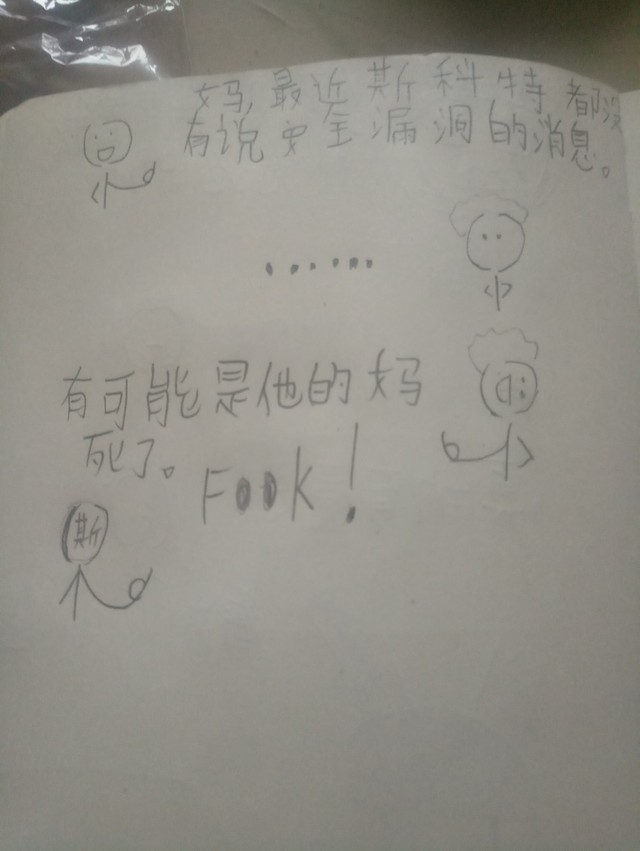 妈,最近斯科特都没
有说安全漏洞的消息。
......
有可能是他的妈
死了。
FOOK!
斯